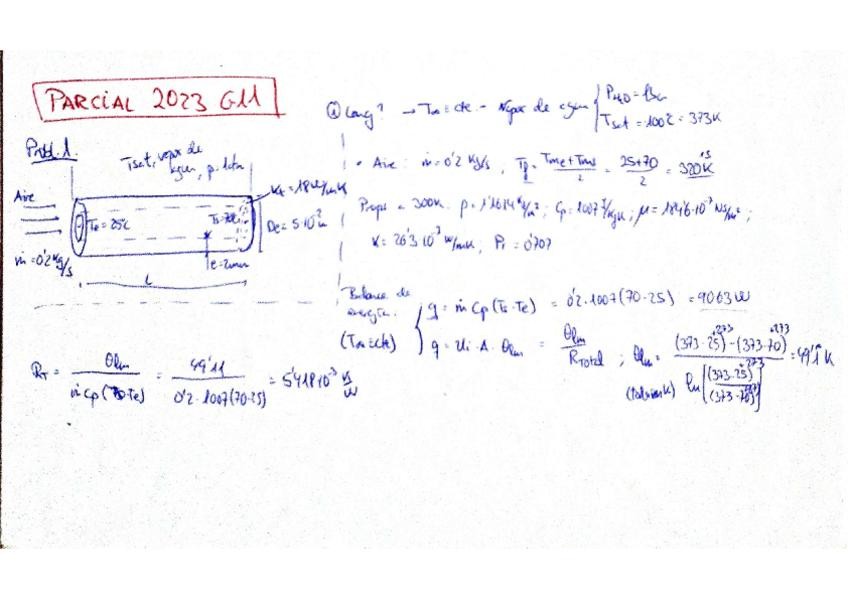 PARCIAL 2023 G11
Prob. 1.
Tsat, vapor de
agua, p. 1atm
Aire
ṁ = 0'2 kg/s
Te = 25ºC
Kt = 18 W/mK
De = 5·10⁻² m
e = 2mm
L
① Long? → T∞ = cte. - Vapor de agua { P H2O = 1 bar
Tsat = 100ºC = 373K
• Aire: ṁ = 0'2 kg/s, Tf = Tme + Tms / 2 = 25+70 / 2 = 320K
Props a 300K. ρ = 1'1614 kg/m³; Cp = 1007 J/kgK; μ = 184'6·10⁻⁷ Ns/m²;
K = 26'3·10⁻³ W/mK, Pr = 0'707
Balance de
energía.
(T∞ = cte)
q = ṁ Cp (Ts - Te) = 0'2 · 1007 (70 - 25) = 9063 W
q = Ui · A · θlm = θlm / RTotal ; θlm = (373-25)⁺²⁷³ - (373-70)⁺²⁷³ / ln[(373-25)⁺²⁷³ / (373-70)⁺²⁷³] = 49'1 K
RT = θlm / ṁ Cp (70 - Te) = 49'11 / 0'2 · 1007 (70-25) = 5'418·10⁻³ K/W